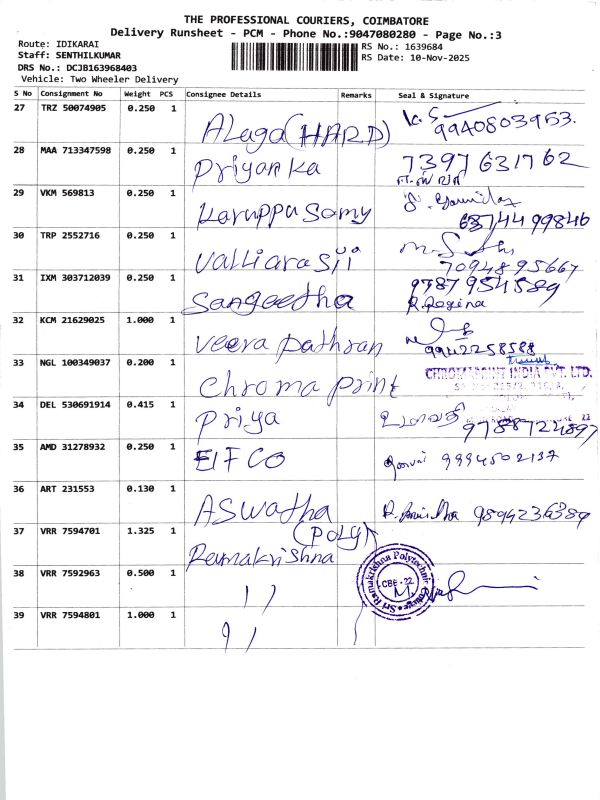 THE PROFESSIONAL COURIERS, COIMBATORE
Delivery Runsheet - PCM - Phone No.:9047080280 - Page No.:3
Route: IDIKARAI
Staff: SENTHILKUMAR
DRS No.: DCJB163968403
Vehicle: Two Wheeler Delivery
RS No.: 1639684
RS Date: 10-Nov-2025
S No Consignment No Weight PCS Consignee Details Remarks Seal & Signature
27 TRZ 50074905 0.250 1 Alaga (HARD) 9940803953.
28 MAA 713347598 0.250 1 Priyanka 7397631762
29 VKM 569813 0.250 1 Karuppusamy 6374499846
30 TRP 2552716 0.250 1 Valliarasii 7094895667
31 IXM 303712039 0.250 1 Sangeetha 9787954589
R. Regina
32 KCM 21629025 1.000 1 Veera pathran 9942258588
33 NGL 100349037 0.200 1 Chroma print CHROMAPRINT INDIA PVT. LTD.
34 DEL 530691914 0.415 1 Priya 9788724897
35 AMD 31278932 0.250 1 EIFCO 9994502137
36 ART 231553 0.130 1 ASwatha 9894236389
37 VRR 7594701 1.325 1 Ramakrishna (POLY)
38 VRR 7592963 0.500 1 ''
Sri Ramakrishna Polytechnic College
CBE-22
39 VRR 7594801 1.000 1 ''